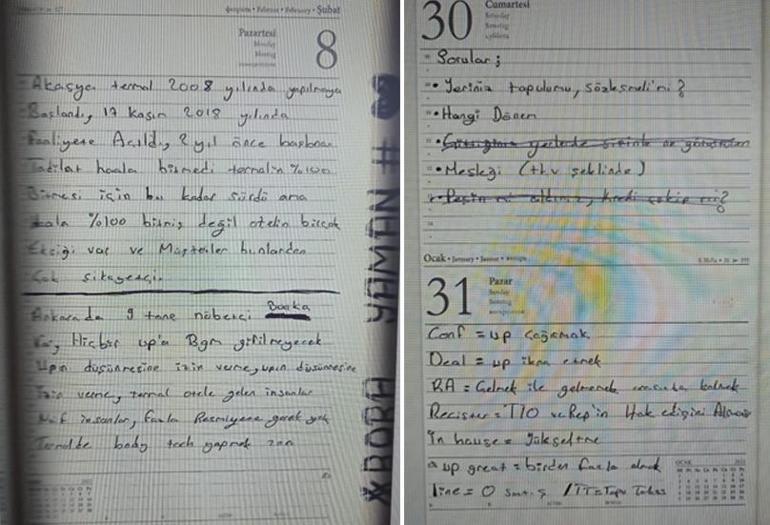 Şubat • February
Pazartesi
Monday
8
Akasya termal 2008 yılında yapılmaya
Başlandı, 17 Kasın 2018 yılında
Faaliyete Açıldı, 2 yıl önce başlanan
Tadilat haala bitmedi termalin %100
Bitmesi için bu kadar sürdü ama
hala %100 bitmiş değil otelin birçok
Eksiği var ve Müşteriler bunlardan
Çok şikayetçi.
Ankarada 9 tane nöbetçi Banka
Var, Hiçbir up'a Bgm girilmeyecek
Upın düşünmesine izin verme, upın düşünmesine
İzin verme, termal otele gelen insanlar
insanlar, fazla Resmiyete gerek yok
Termalde body tech yapmak
BORA YAMAN #
30
Cumartesi
Saturday
Sorular;
• Yeriniz tapulumu, sözleşmeli mi?
• Hangi Dönem
• Mesleği (tkv şeklinde)
• Peşin mi aldınız, kredi çekip mi?
Ocak • January
31
Pazar
Sunday
Conf = up Çağırmak
Deal = up ikna etmek
RA = Gelmek ile gelmemek arasında kalmak
Recister = T10 ve Rep'in Hak edişini Alması
İn house = Yükseltme
up great = birden fazla almak
line = 0 satış / TT = Tapu Takas
OCAK